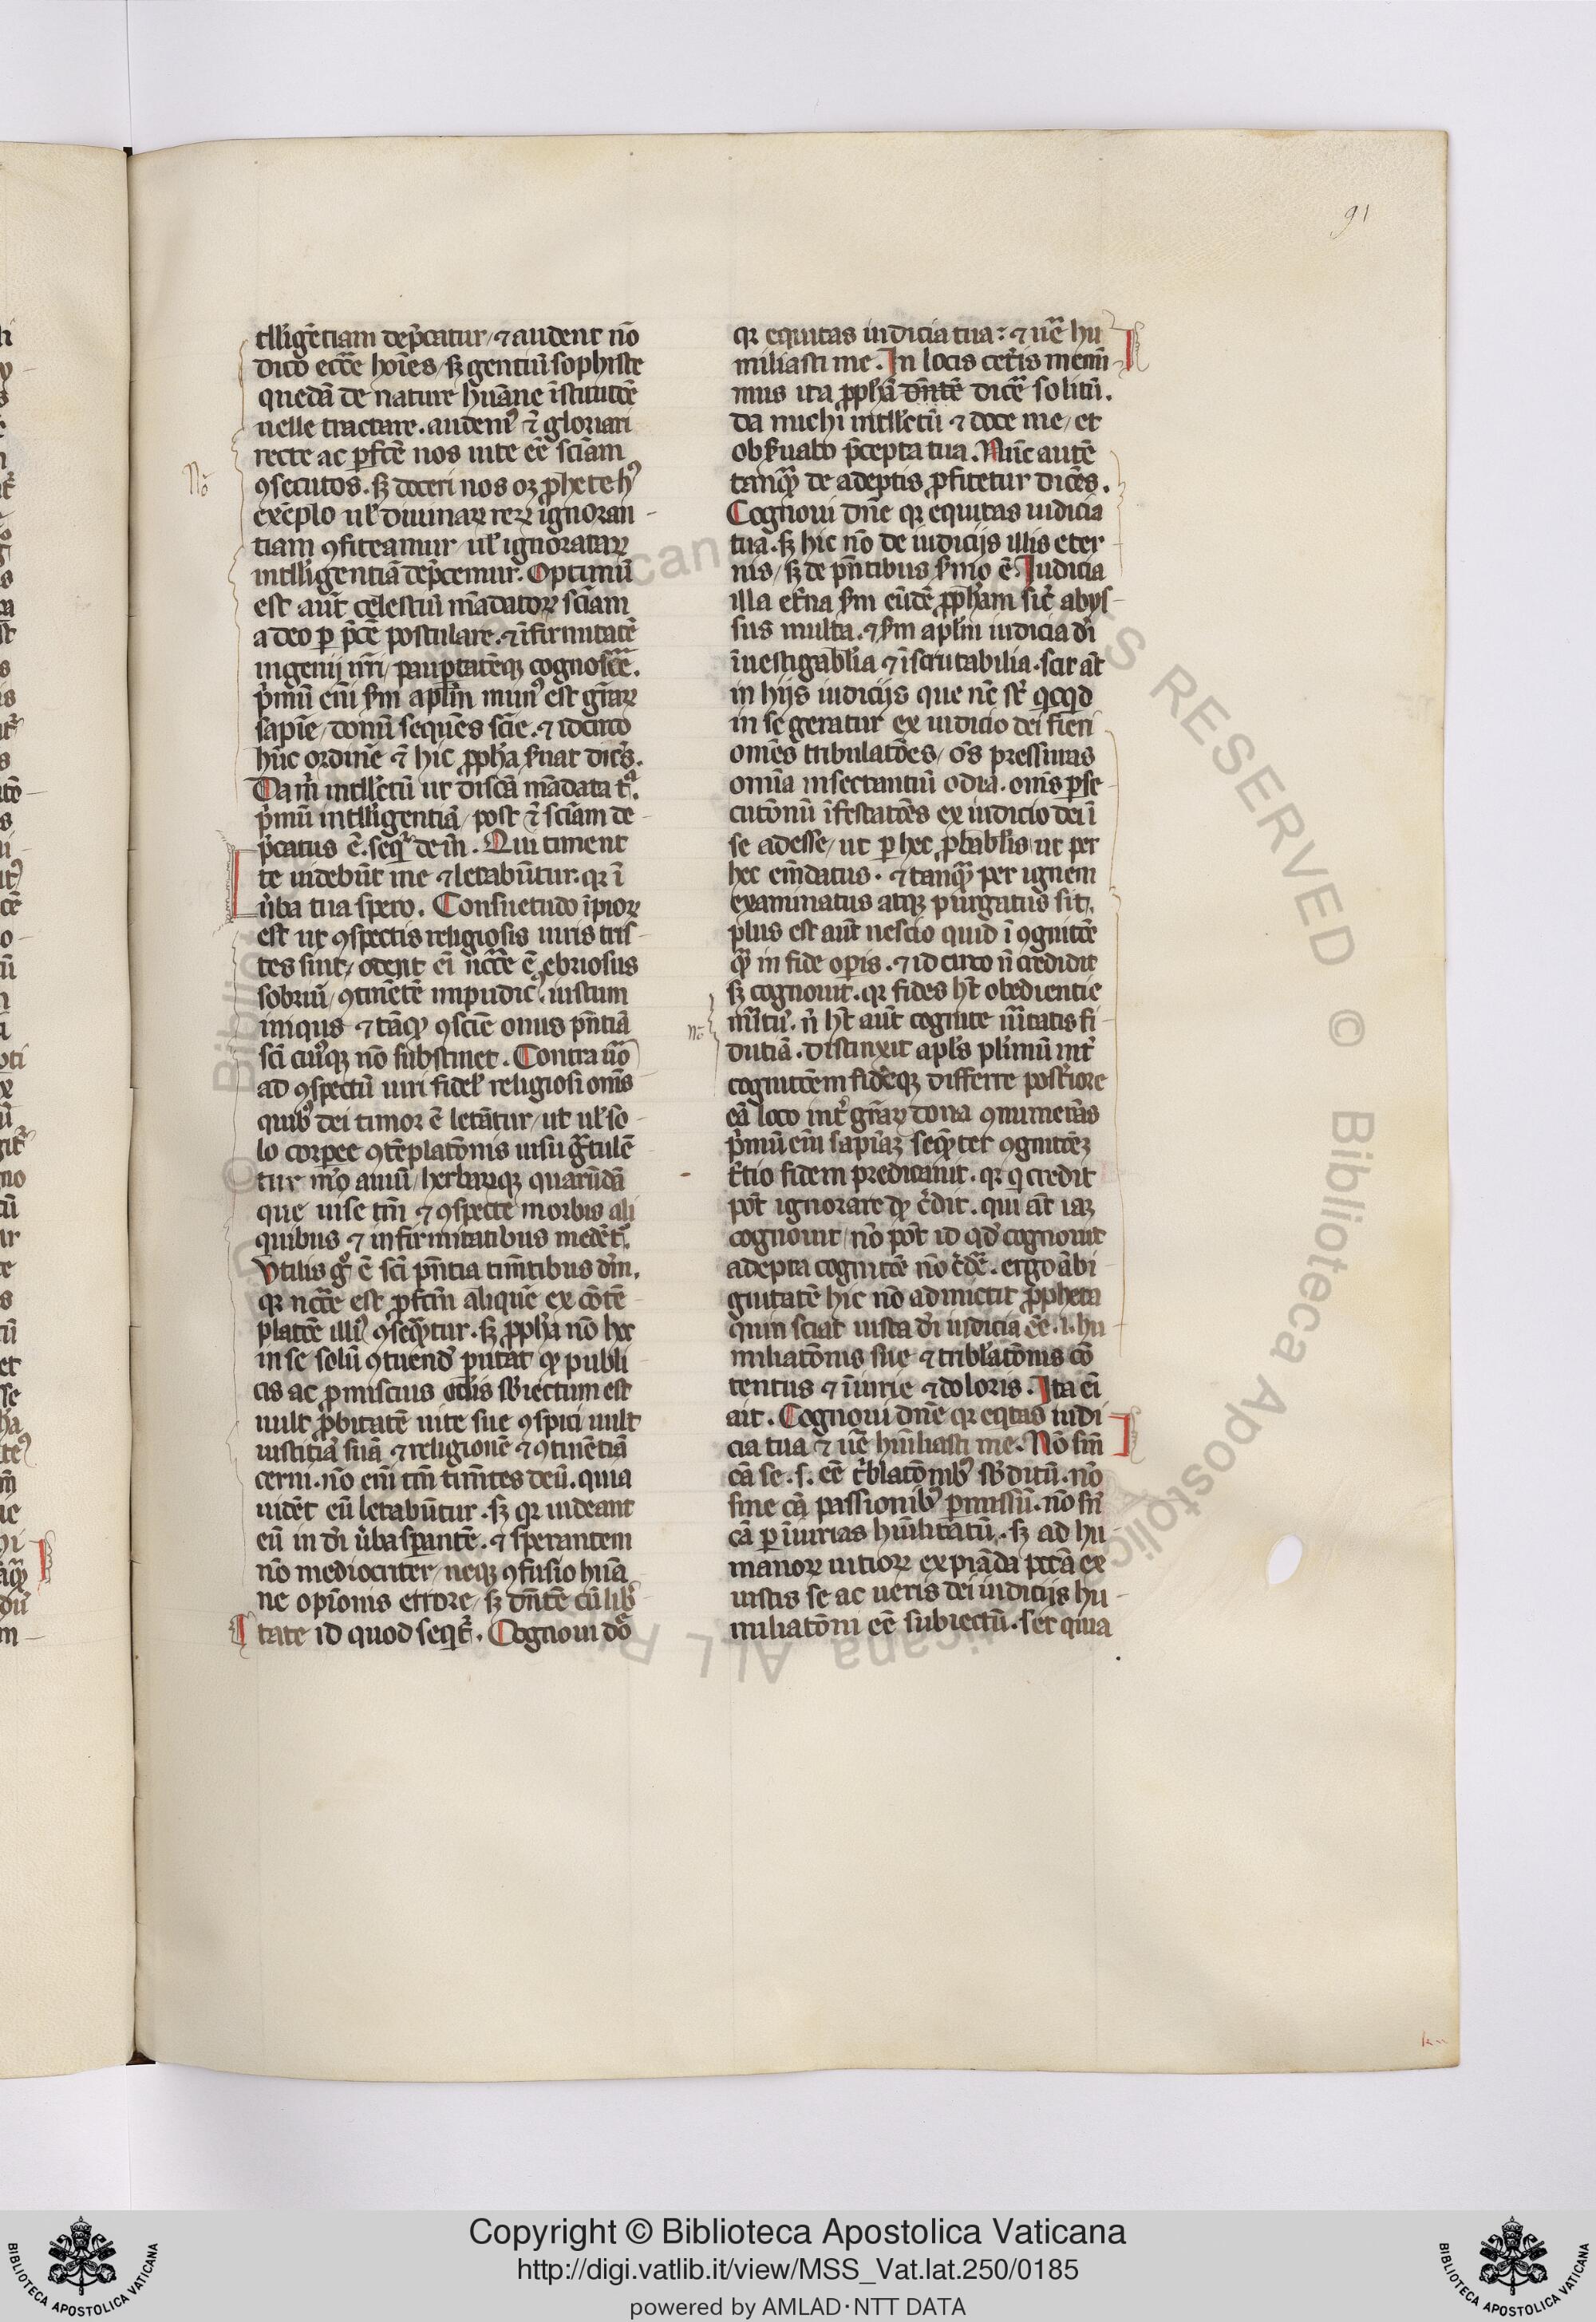 91
tlligētiam dep̄catur / ⁊ audent nō
dico ecc̄e hoīes / sꝫ gentiū sophiste
quedā de nature hūane īstitutōe
uelle tractare . audemꝰ ⁊̄ gloriari
recte ac ꝑfc̄e nos uite eē sciām
ꝯsecutos . sꝫ doceri nos oꝫ ꝓphete hꝰ
exēplo ul̓ diuinaꝝ reꝝ ignoran-
tiam ꝯfiteamur / ul̓ ignorataꝝ
intlligentiā dep̄cemur . Optimū
est aut̄ celestiū mādatoꝝ sciām
a deo ꝑ p̄cē postulare . ⁊ īfirmitatē
ingenij nr̄i / paupertatēqꝫ cognosc̄e .
p̓mū enī scd̄m apl̄m munꝰ est gr̄aꝝ
sapīe / donū sequēs scīe . ⁊ idcirco
hūc ordinē ⁊̄ hic ꝓph̄a seruat dicēs .
Da m̓ intll̄ectū ut discā mādata tᷓ .
p̓mū intlligentiā / post ⁊̄ sciām de-
p̄catus ē . seqr̄ de m̄ . Qui timent
te uidebūt me ⁊ letabūtur . qꝛ ī
ūba tua spero . Consuetudo īpioꝝ
est ut ꝯspectis religiosis uiris tris-
tes sint / odent enī ncc̄e ē ebriosus
sobriū / ꝯtinētē impudicꝰ . iustum
iniqus ⁊ tāqꝫ ꝯsciē onus pn̄tiā
sc̄i cuiꝰqꝫ nō substinet . Contra uº
ad ꝯspectū uiri fidel̓ religiosi om̄s
quibꝰ dei timor ē letātur / ut ul̓ so-
lo corpee ꝯtēplatōnis uisu gᷓtulē
tur mº auiū / herbaꝝqꝫ quarūdā
que uise tm̄ ⁊ ꝯspecte morbis ali
quibus ⁊ infirmitatibus medēt̓ .
Vtilis gº ē sc̄i pn̄tia tim̄tibus dm̄ .
qꝛ ncc̄e est ꝓfc̄m aliquē ex cōtē
platōe illiꝰ ꝯseqᷓtur . sꝫ ꝓph̄a nō hec
in se solū ꝯtuend̓ putat qꝫ publi
cis ac ꝓmiscuis odiis sb̓iectum est
uult ꝓbitatē uite sue ꝯspici uult
iustitiā suā ⁊ religionē ⁊ ꝯtinētiā
cerni . nō enī tm̄ tim̄tes deū . quia
uidēt eū letabūtur . sꝫ qꝛ uideant
eū in dī ūba sperantē . ⁊ sperantem
nō mediocriter / neqꝫ ꝯfusio hūa-
ne opinōnis errore / sꝫ cū lib̓
tate id quod seqr̄ . Cognoui dº
qꝛ equitas iudicia tua : ⁊ uē hu
miliasti me . In locis cet̓is memī-
mus ita ꝓph̄ā dn̄tē dic̄e solitū .
da michi intll̄ectū ⁊ doce me / et
obseruabo p̄cepta tua . Nūc autē
tanqᷓ de adeptis ꝓfitetur dicēs .
Cognoui dn̄e qꝛ equitas iudicia
tua . sꝫ hic nō de iudicijs illis eter-
nis / sꝫ de pn̄tibus sermo ē . Iudicia
illa et̓na scd̄m eūdē ꝓph̄am sic̄ abys-
sus multa . ⁊ scd̄m apl̄m iudicia dī
īuestigabl̓ia ⁊ īscrutabilia . scit at̄
in hijs iudicijs que nē sic̄ qcqd
in se geratur ex iudicio dei fieri
omēs tribulatōes / ōs pressuras
omīa insectantiū odia . om̄s ꝑse-
cutōnū īfestatōes ex iudicio dei ī
se adesse / ut ꝑ hec ꝓbabl̓is ut per
hec em̄datus . ⁊ tanqᷓ per ignem
examinatus atqꝫ purgatus sit .
plus est aut̄ nescio quid ī ꝯgnitōe
qᷓ in fide oꝑis . ⁊ id circo n̄ credidit
sꝫ cognouit . qꝛ fides ht̄ obedientie
m̄itū . n̄ ht̄ aut̄ cognite ūitatis fi-
dutiā . distinxit apl̓s plurimū int̓
cognitōem fidēqꝫ differre post̓iore
eā loco int̓ gr̄aꝝ dona ꝯnumerās
p̓mū enī sapīaꝫ seqᷓter ꝯgnitōeꝫ
t̓tio fidem predicauit . qꝛ q̓ credit
pōt ignorare qꝫ c̓dit . qui āt iaꝫ
cognouit / nō pōt id qd̓ cognouit
adepta cognitōe nō c̓de . ergo ābi
guitatē hic nō admictit ꝓpheta
quin sciat iusta dī iudicia eē .i. hu
miliatōnis sue ⁊ tribl̓atōnis cō
tentus ⁊ īiurie ⁊ doloris . Ita enī
ait . Cognoui dn̄e qꝛ eqtas iudi
cia tua ⁊ uē hūiliasti me . Nō sin̄
cā se .s. eē t̓blatōnibꝰ sb̓ditū . nō
sine cā passionibꝰ ꝑmissū . nō sin̄
cā ꝑ īiurias hūilitatū . sꝫ ad hu-
manoꝝ uitioꝝ expiāda pctā ex
iustis se ac ueris dei iudicijs hu-
miliatōni eē subiectū . set quia
Nō
nō
Copyright © Biblioteca Apostolica Vaticana
http://digi.vatlib.it/view/MSS_Vat.lat.250/0185
powered by AMLAD·NTT DATA
BIBLIOTECA APOSTOLICA VATICANA
BIBLIOTECA APOSTOLICA VATICANA